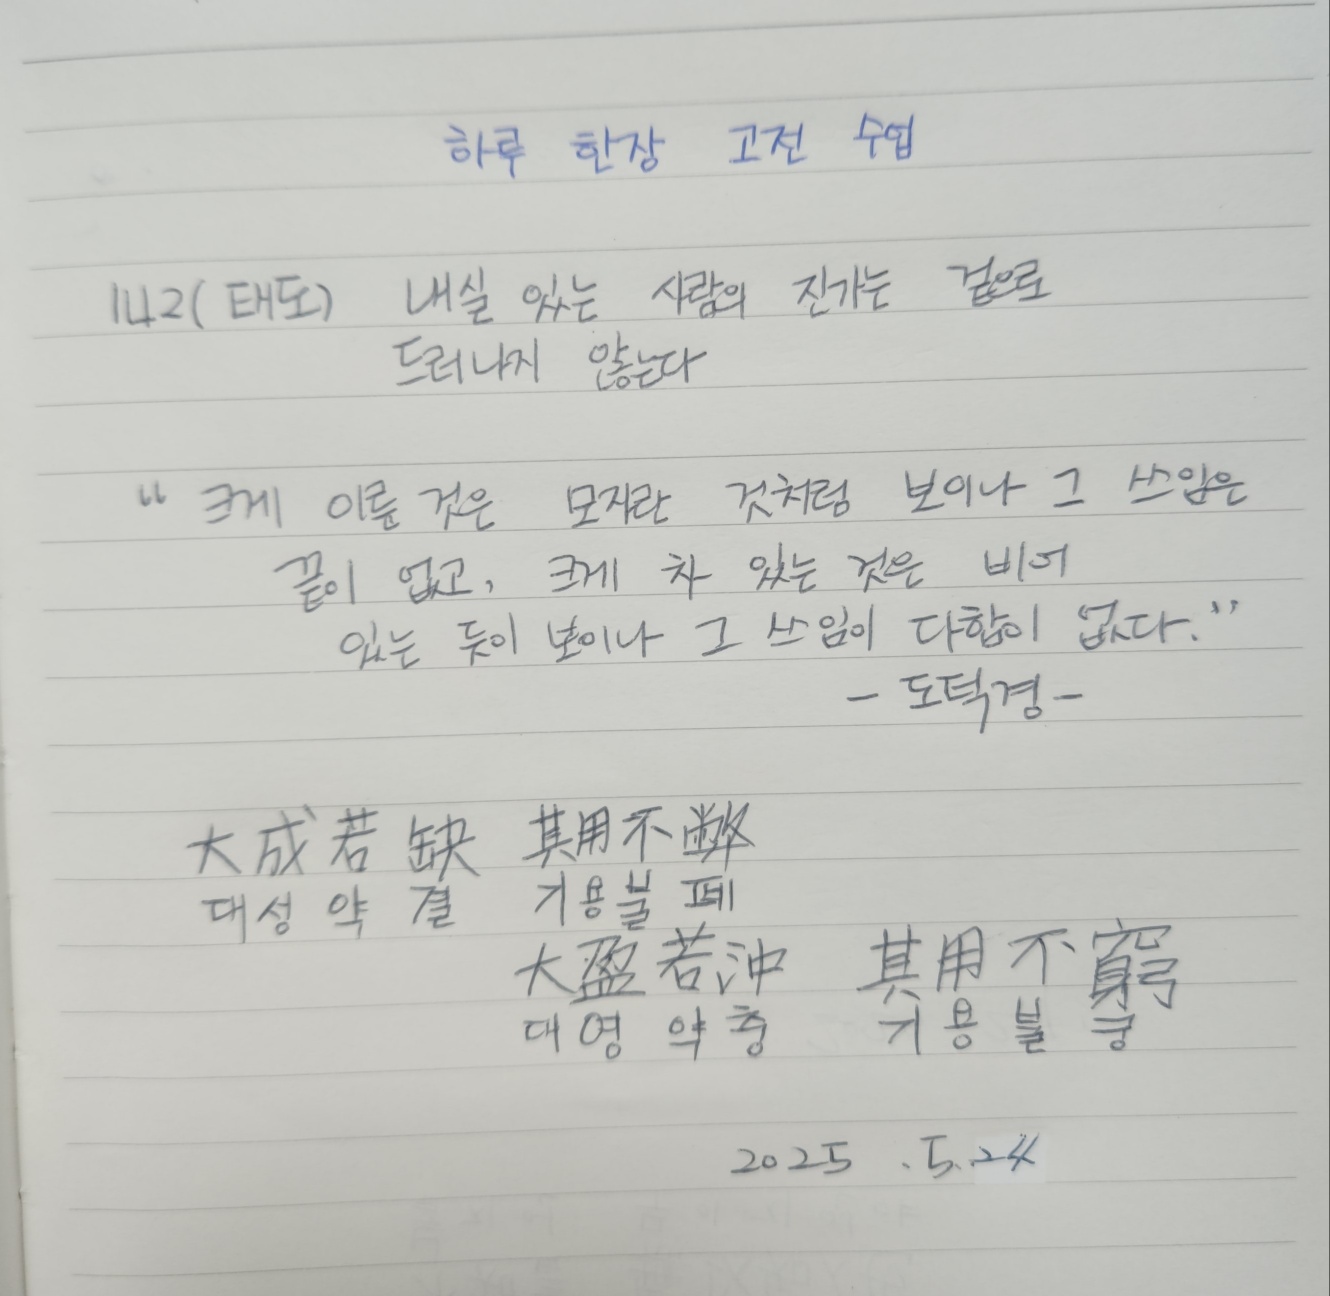 하루 한장 고전 수업
142(태도) 내실 있는 사람의 진가는 겉으로
드러나지 않는다
“크게 이룬 것은 모자란 것처럼 보이나 그 쓰임은
끝이 없고, 크게 차 있는 것은 비어
있는 듯이 보이나 그 쓰임이 다함이 없다.”
- 도덕경 -
大成若缺 其用不弊
대성약결 기용불폐
大盈若沖 其用不窮
대영약충 기용불궁
2025.5.24